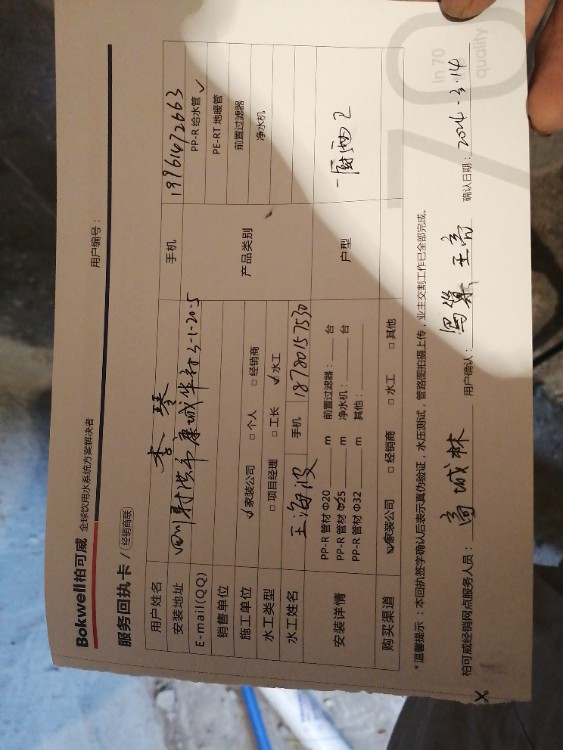 Bokwell柏可威 全球饮用水系统方案解决者
服务回执卡 / 经销商联
用户编号：
用户姓名 李琴 手机 19961472663
安装地址 四川射洪市康城华府3-1-20-5
产品类别 PP-R 给水管 ✓
PE-RT 地暖管
前置过滤器
净水机
E-mail(QQ)
销售单位
施工单位 ✓家装公司 □ 个人 □ 经销商
水工类型 □ 项目经理 □ 工长 ✓水工
水工姓名 王海波 手机 18780157530
户型 一厨两卫
安装详情 PP-R 管材 Φ20 m 前置过滤器： 台
PP-R 管材 Φ25 m 净水机： 台
PP-R 管材 Φ32 m 其他：
购买渠道 ✓家装公司 □ 经销商 □ 水工 □ 其他
*温馨提示：本回执签字确认后表示真伪验证，水压测试，管路图拍摄上传，业主交割工作已全部完成。
柏可威经销网点服务人员： 高城林 用户确认： 王亮 确认日期： 3.14
in 70
quality
70